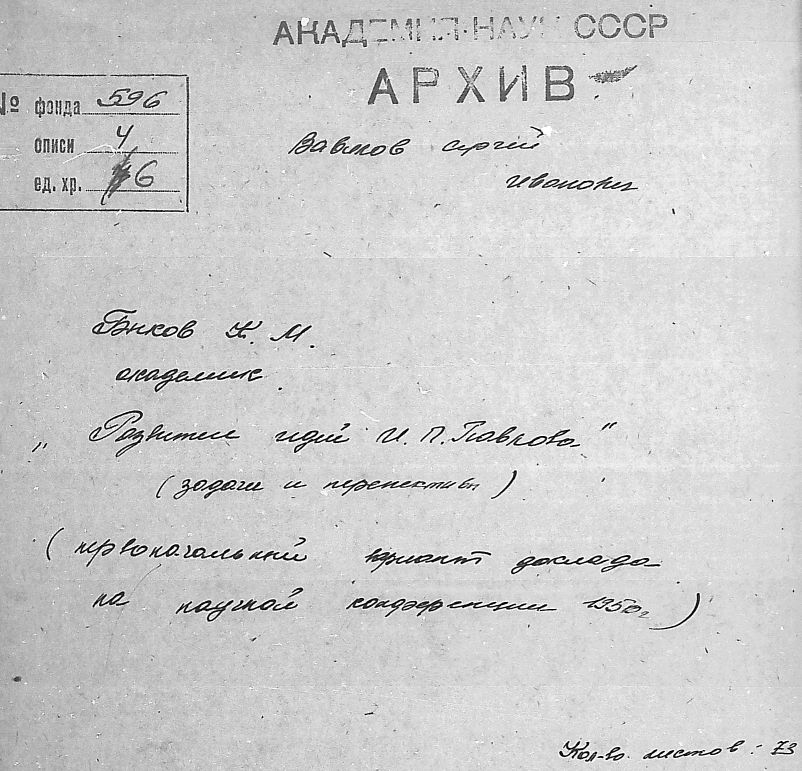 АКАДЕМИЯ НАУК СССР
АРХИВ
№ фонда 596
описи 4
ед. хр. 46
Вавилов Сергей
Иванович
Быков К. М.
академик
„Развитие идей И. П. Павлова"
(задачи и перспективы)
(первоначальный вариант доклада
на научной конференции 1950г)
Кол-во листов: 73